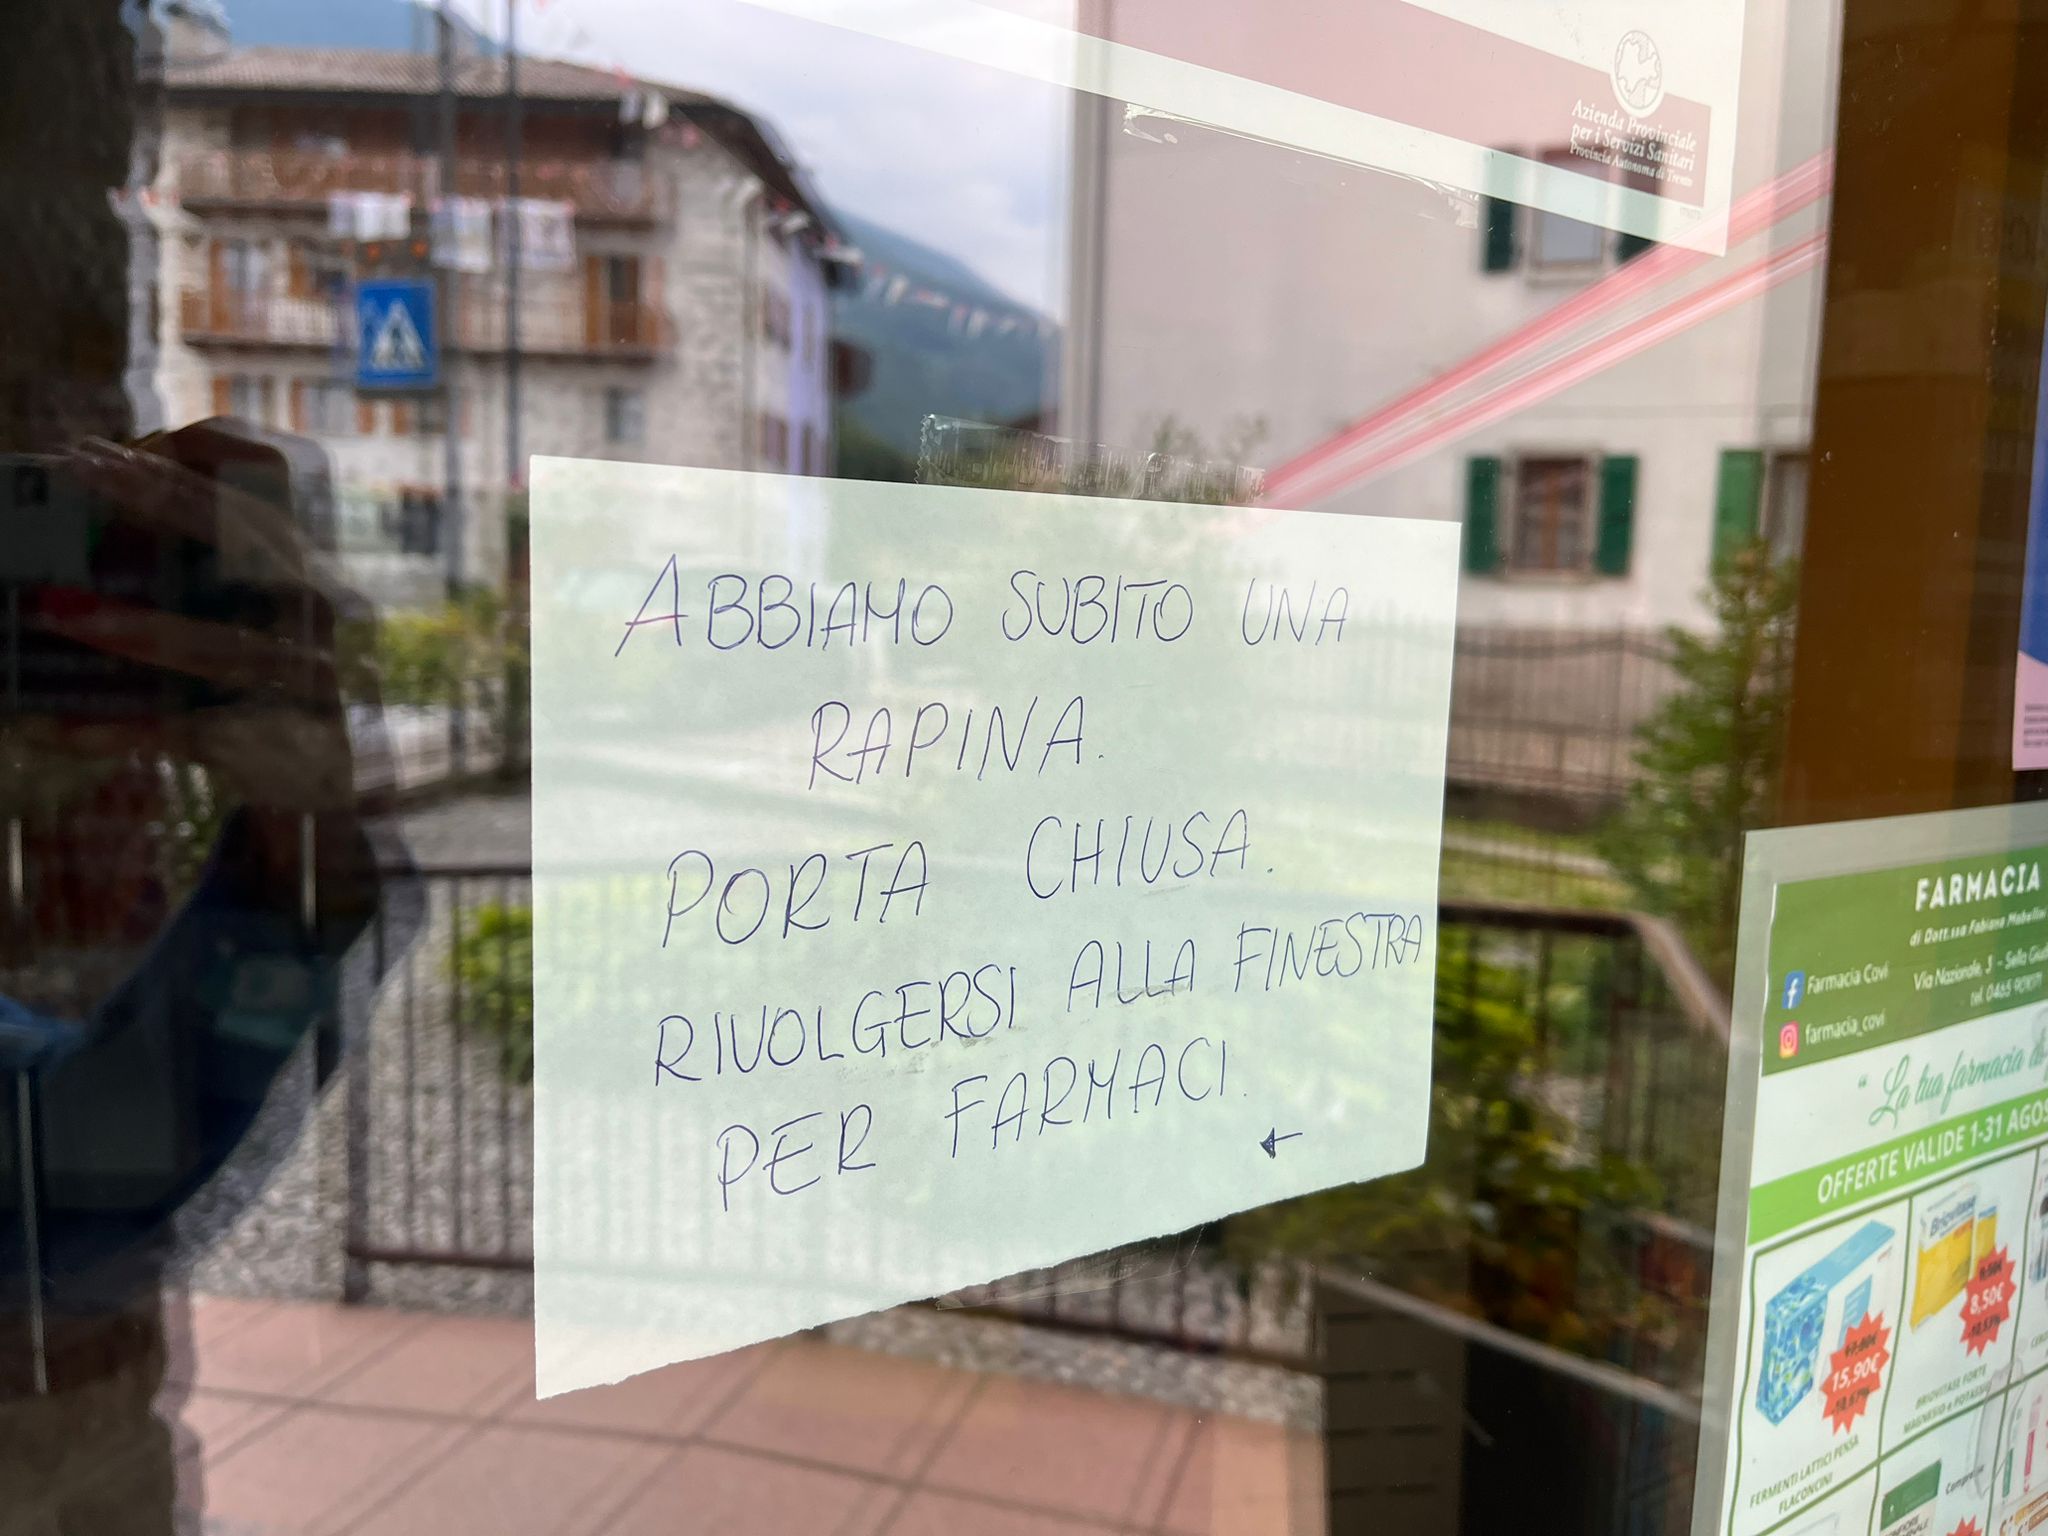 Azienda Provinciale
per i Servizi Sanitari
Provincia Autonoma di Trento
ABBIAMO SUBITO UNA
RAPINA.
PORTA CHIUSA.
RIVOLGERSI ALLA FINESTRA
PER FARMACI.
FARMACIA
di Dott.ssa Fabiana
Farmacia Covi
Via Nazionale, 3 - Sella
farmacia_covi
tel. 0465 901071
"La tua farmacia
OFFERTE VALIDE 1-31
Briovitase
17.80€
15,90€
-10.67%
8,50€
FERMENTI LATTICI PENSA
FLACONCINI
BRIOVITASE FORTE
MAGNESIO e POTASSIO